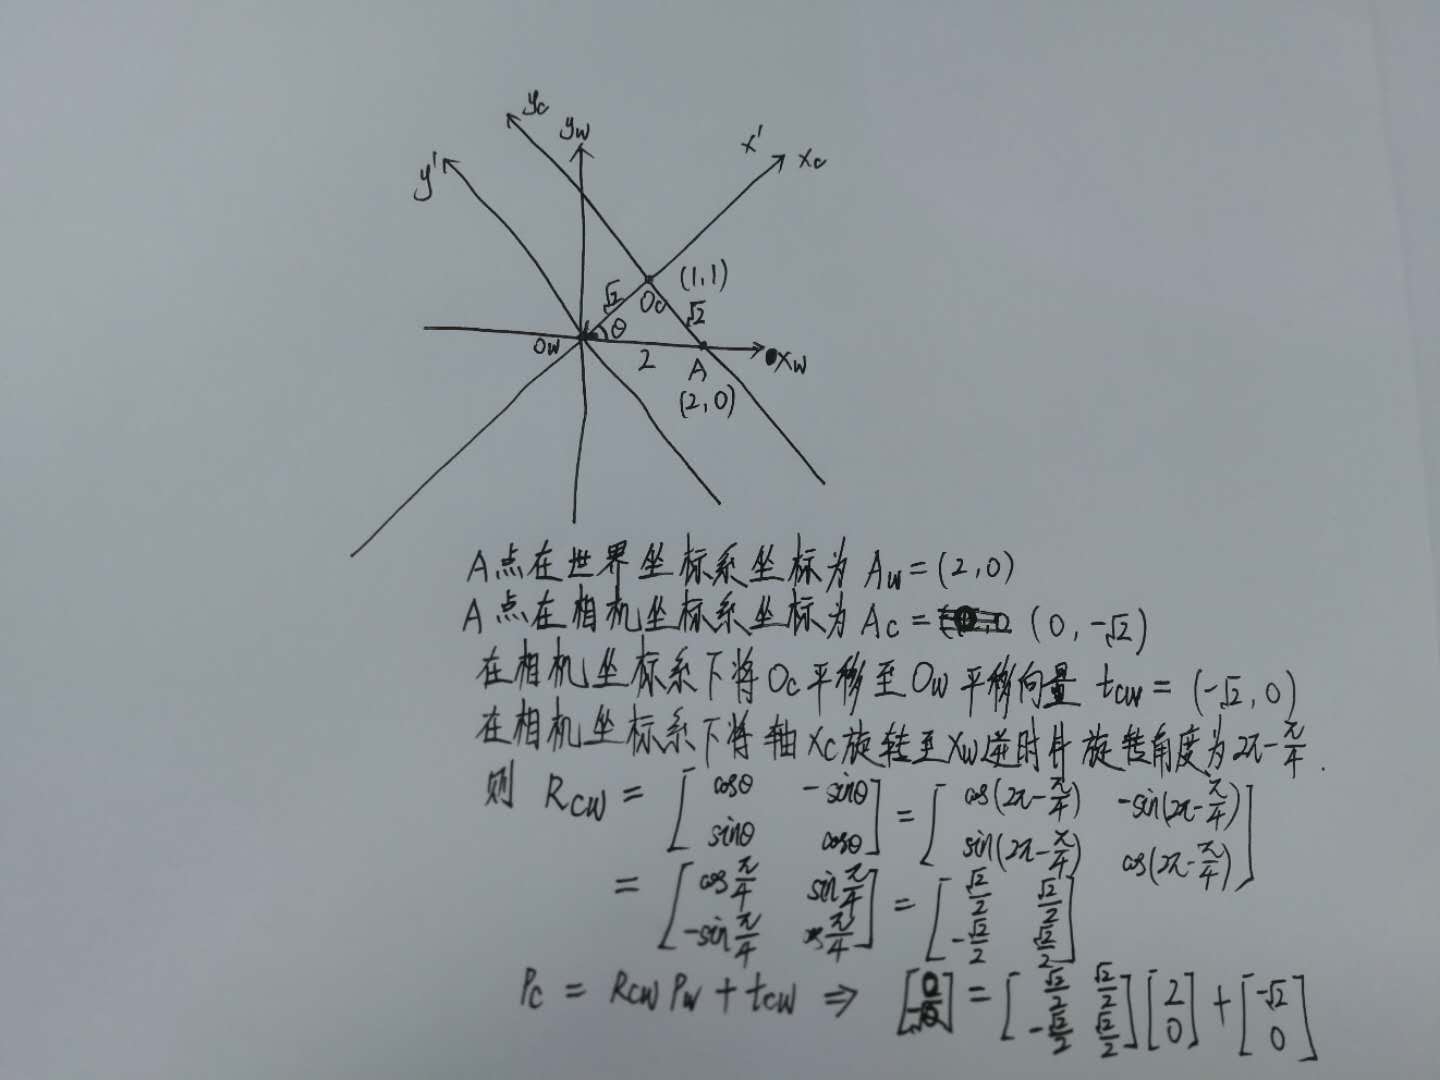 yc
yw
x'
xc
y'
(1,1)
√2
Oc
θ
√2
Ow
2
A
xw
(2,0)
A点在世界坐标系坐标为 Aw=(2,0)
A点在相机坐标系坐标为 Ac= (0,-√2)
在相机坐标系下将Oc平移至Ow平移向量 tcw= (-√2,0)
在相机坐标系下将轴Xc旋转至Xw逆时针旋转角度为2π-π/4.
则 Rcw = [cosθ -sinθ; sinθ cosθ] = [cos(2π-π/4) -sin(2π-π/4); sin(2π-π/4) cos(2π-π/4)]
= [cosπ/4 sinπ/4; -sinπ/4 cosπ/4] = [√2/2 √2/2; -√2/2 √2/2]
Pc = Rcw Pw + tcw ⇒ [0; -√2] = [√2/2 √2/2; -√2/2 √2/2][2; 0] + [-√2; 0]